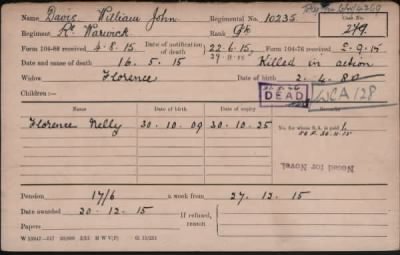 Name Davis William John Regimental No. 10235
Regiment Rl. Warwick Rank Gte Cash No. 249
Form 104-88 received 4.8.15 Date of notification of death 22.6.15 Form 104-76 received 2.9.15
Date and cause of death 16.5.15 Killed in action
Widow Florence Date of birth 2.4.80
Children:— DEAD WCA 128
Name Date of birth Date of expiry Remarks
Florence Nelly 30-10-09 30-10-25 No. for whom S.A. is paid 1
Noted for Novel
Pension 17/6 a week from 27.12.15
Date awarded 20.12.15 If refused, reason
Papers